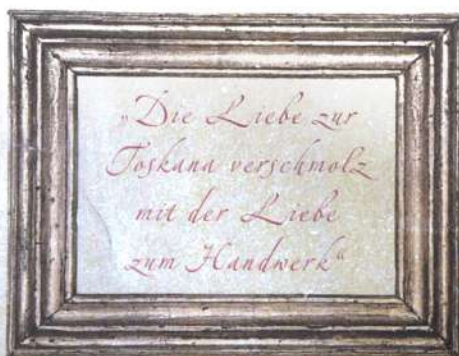 „Die Liebe zur
Toskana verschmolz
mit der Liebe
zum Handwerk“